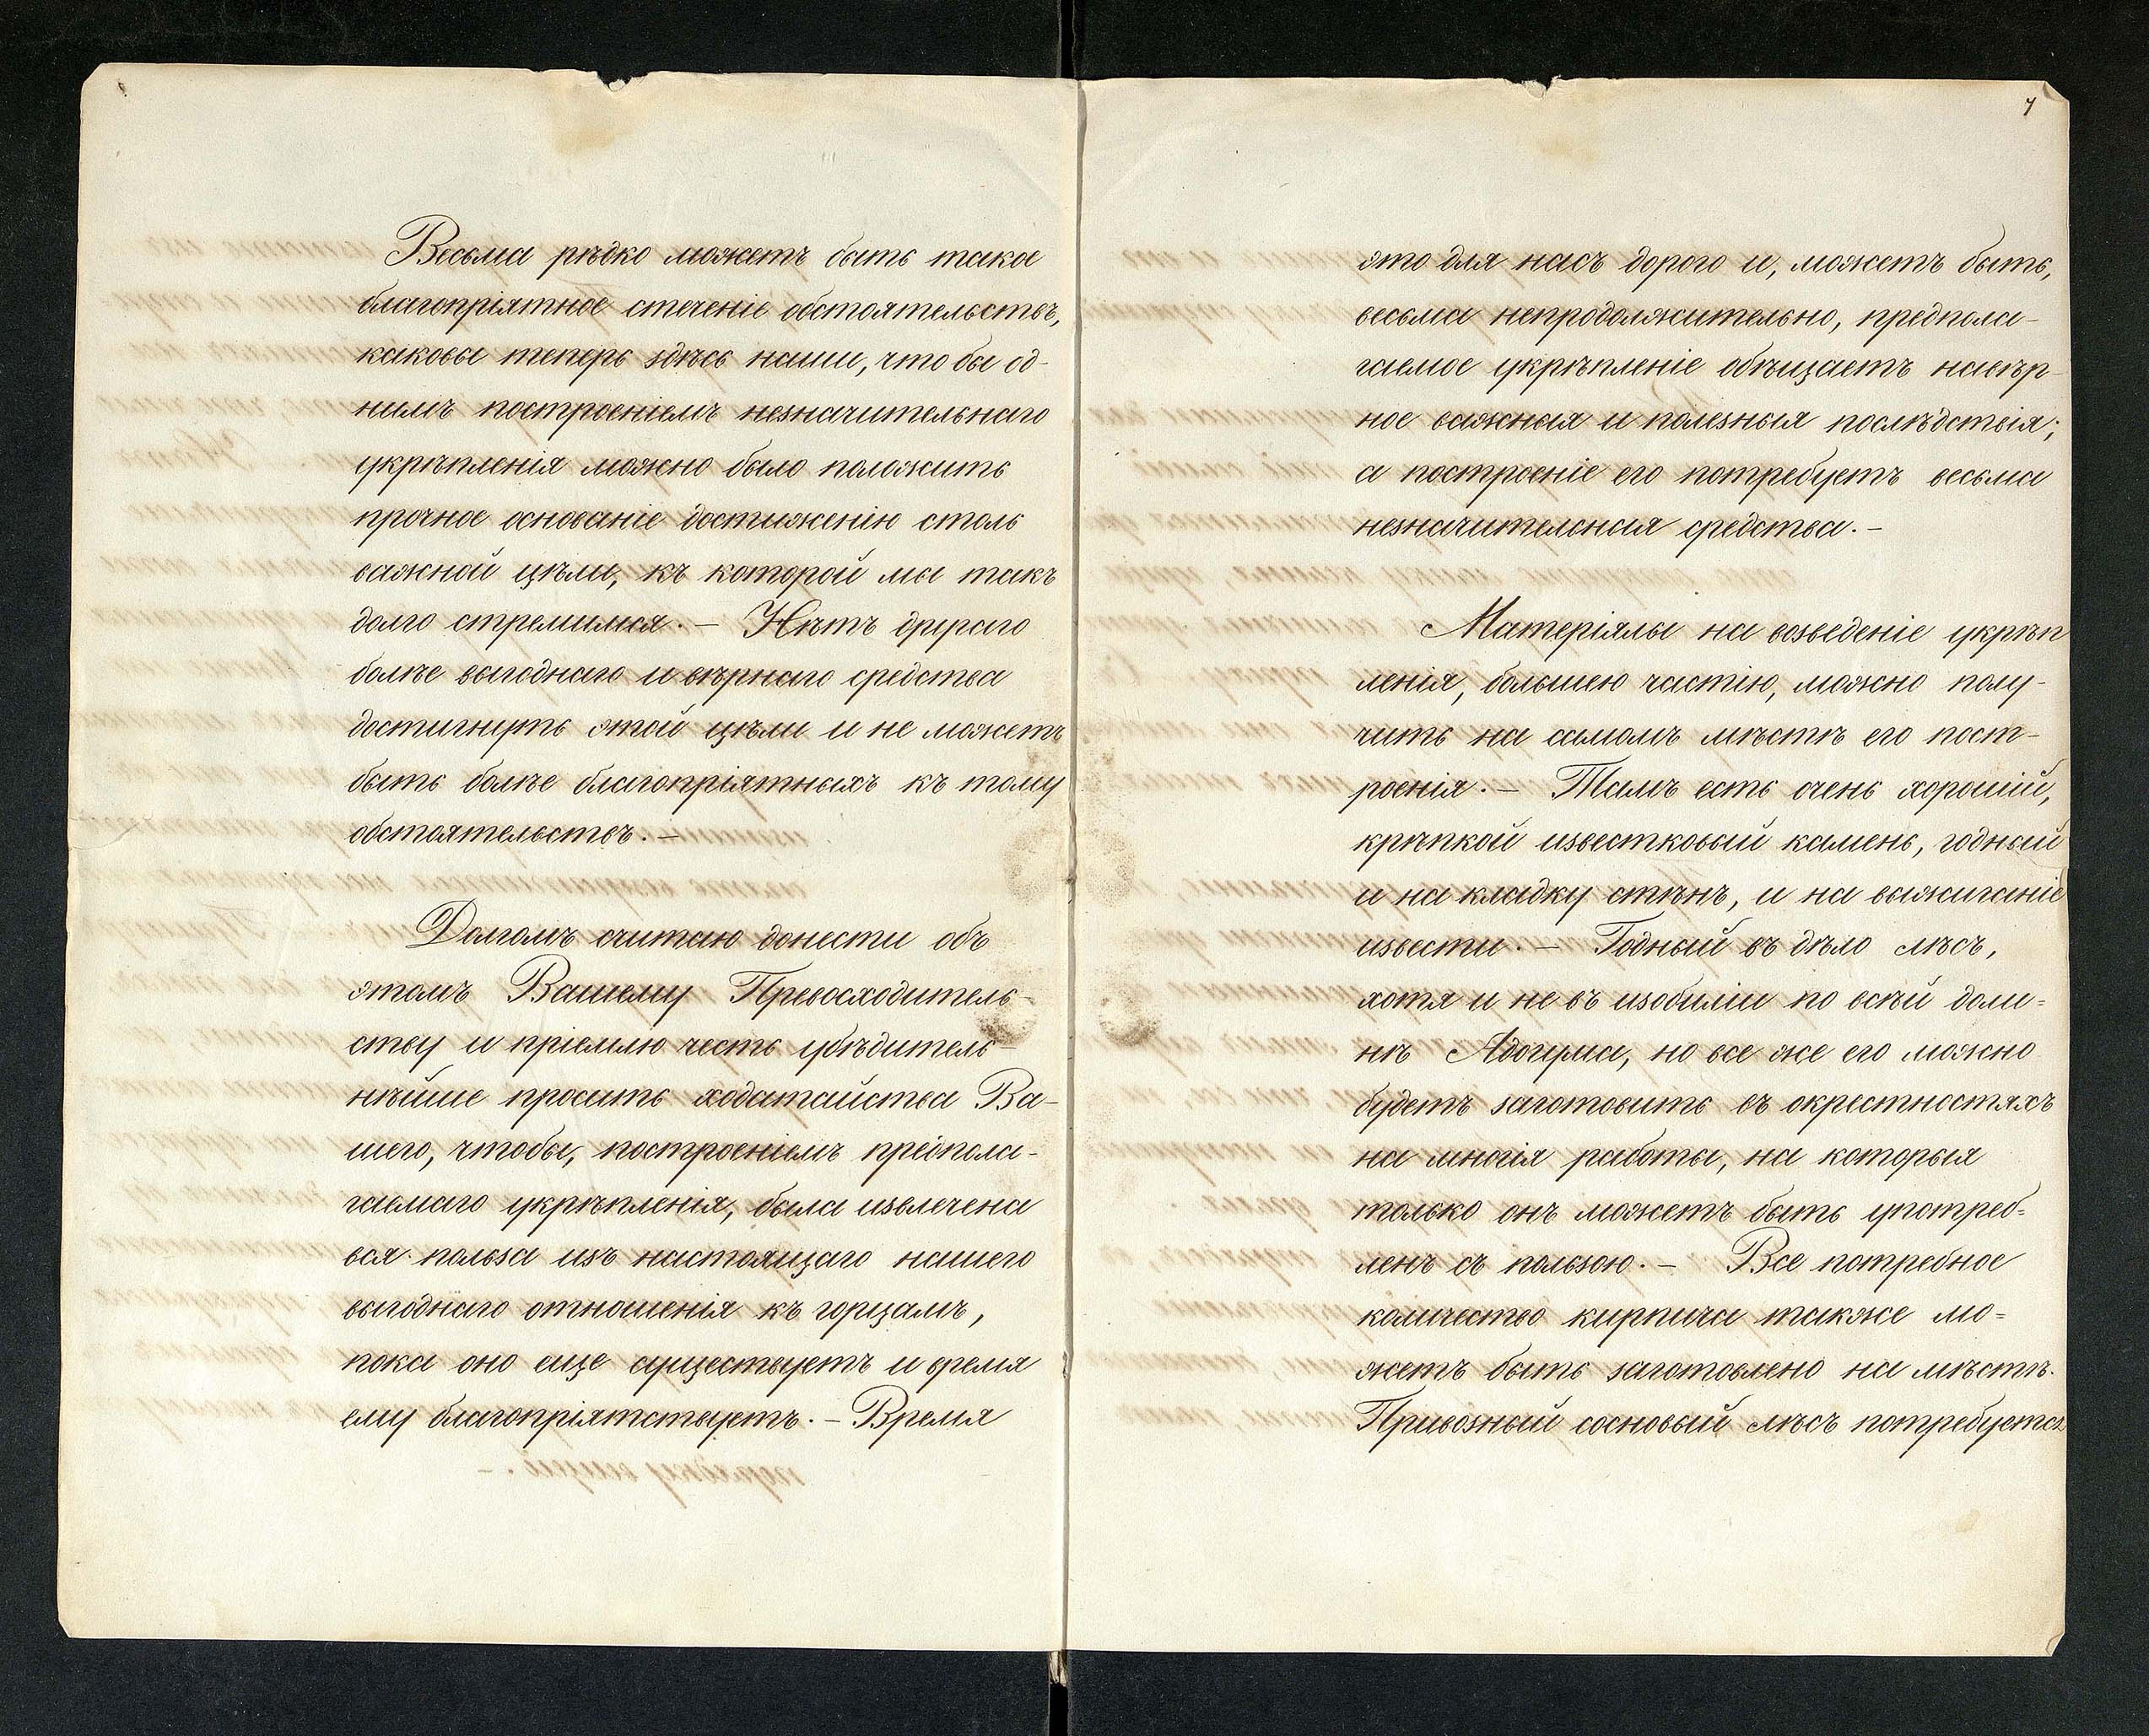 Весьма рѣдко можетъ быть такое
благопріятное стеченіе обстоятельствъ,
каковы теперь здѣсь наши, что бы од-
нимъ построеніемъ незначительнаго
укрѣпленія можно было положить
прочное основаніе достиженію столь
важной цѣли, къ которой мы такъ
долго стремимся. — Нѣтъ другаго
болѣе выгоднаго и вѣрнаго средства
достигнуть этой цѣли и не можетъ
быть болѣе благопріятныхъ къ тому
обстоятельствъ. —
Долгомъ считаю донести объ
этомъ Вашему Превосходитель-
ству и пріемлю честь убѣдитель-
нѣйше просить ходатайства Ва-
шего, чтобы, построеніемъ предпола-
гаемаго укрѣпленія, была извлечена
вся польза изъ настоящаго нашего
выгоднаго отношенія къ горцамъ,
пока оно еще существуетъ и время
ему благопріятствуетъ. — Время
7
это для насъ дорого и, можетъ быть,
весьма непродолжительно, предпола-
гаемое укрѣпленіе обѣщаетъ навѣр-
ное важныя и полезныя послѣдствія;
а построеніе его потребуетъ весьма
незначительныя средства. —
Матеріялы на возведеніе укрѣп
ленія, большею частію, можно полу-
чить на самомъ мѣстѣ его пост-
роенія. — Тамъ есть очень хорошій,
крѣпкой известковый камень, годный
и на кладку стѣнъ, и на выжиганіе
извести. — Годный въ дѣло лѣсъ,
хотя и не въ изобиліи по всѣй доли=
нѣ Адогума, но все же его можно
будетъ заготовить въ окрестностяхъ
на многія работы, на которыя
только онъ можетъ быть употреб=
ленъ съ пользою. — Все потребное
количество кирпича также мо=
жетъ быть заготовлено на мѣстѣ.
Привозный сосновый лѣсъ потребуется